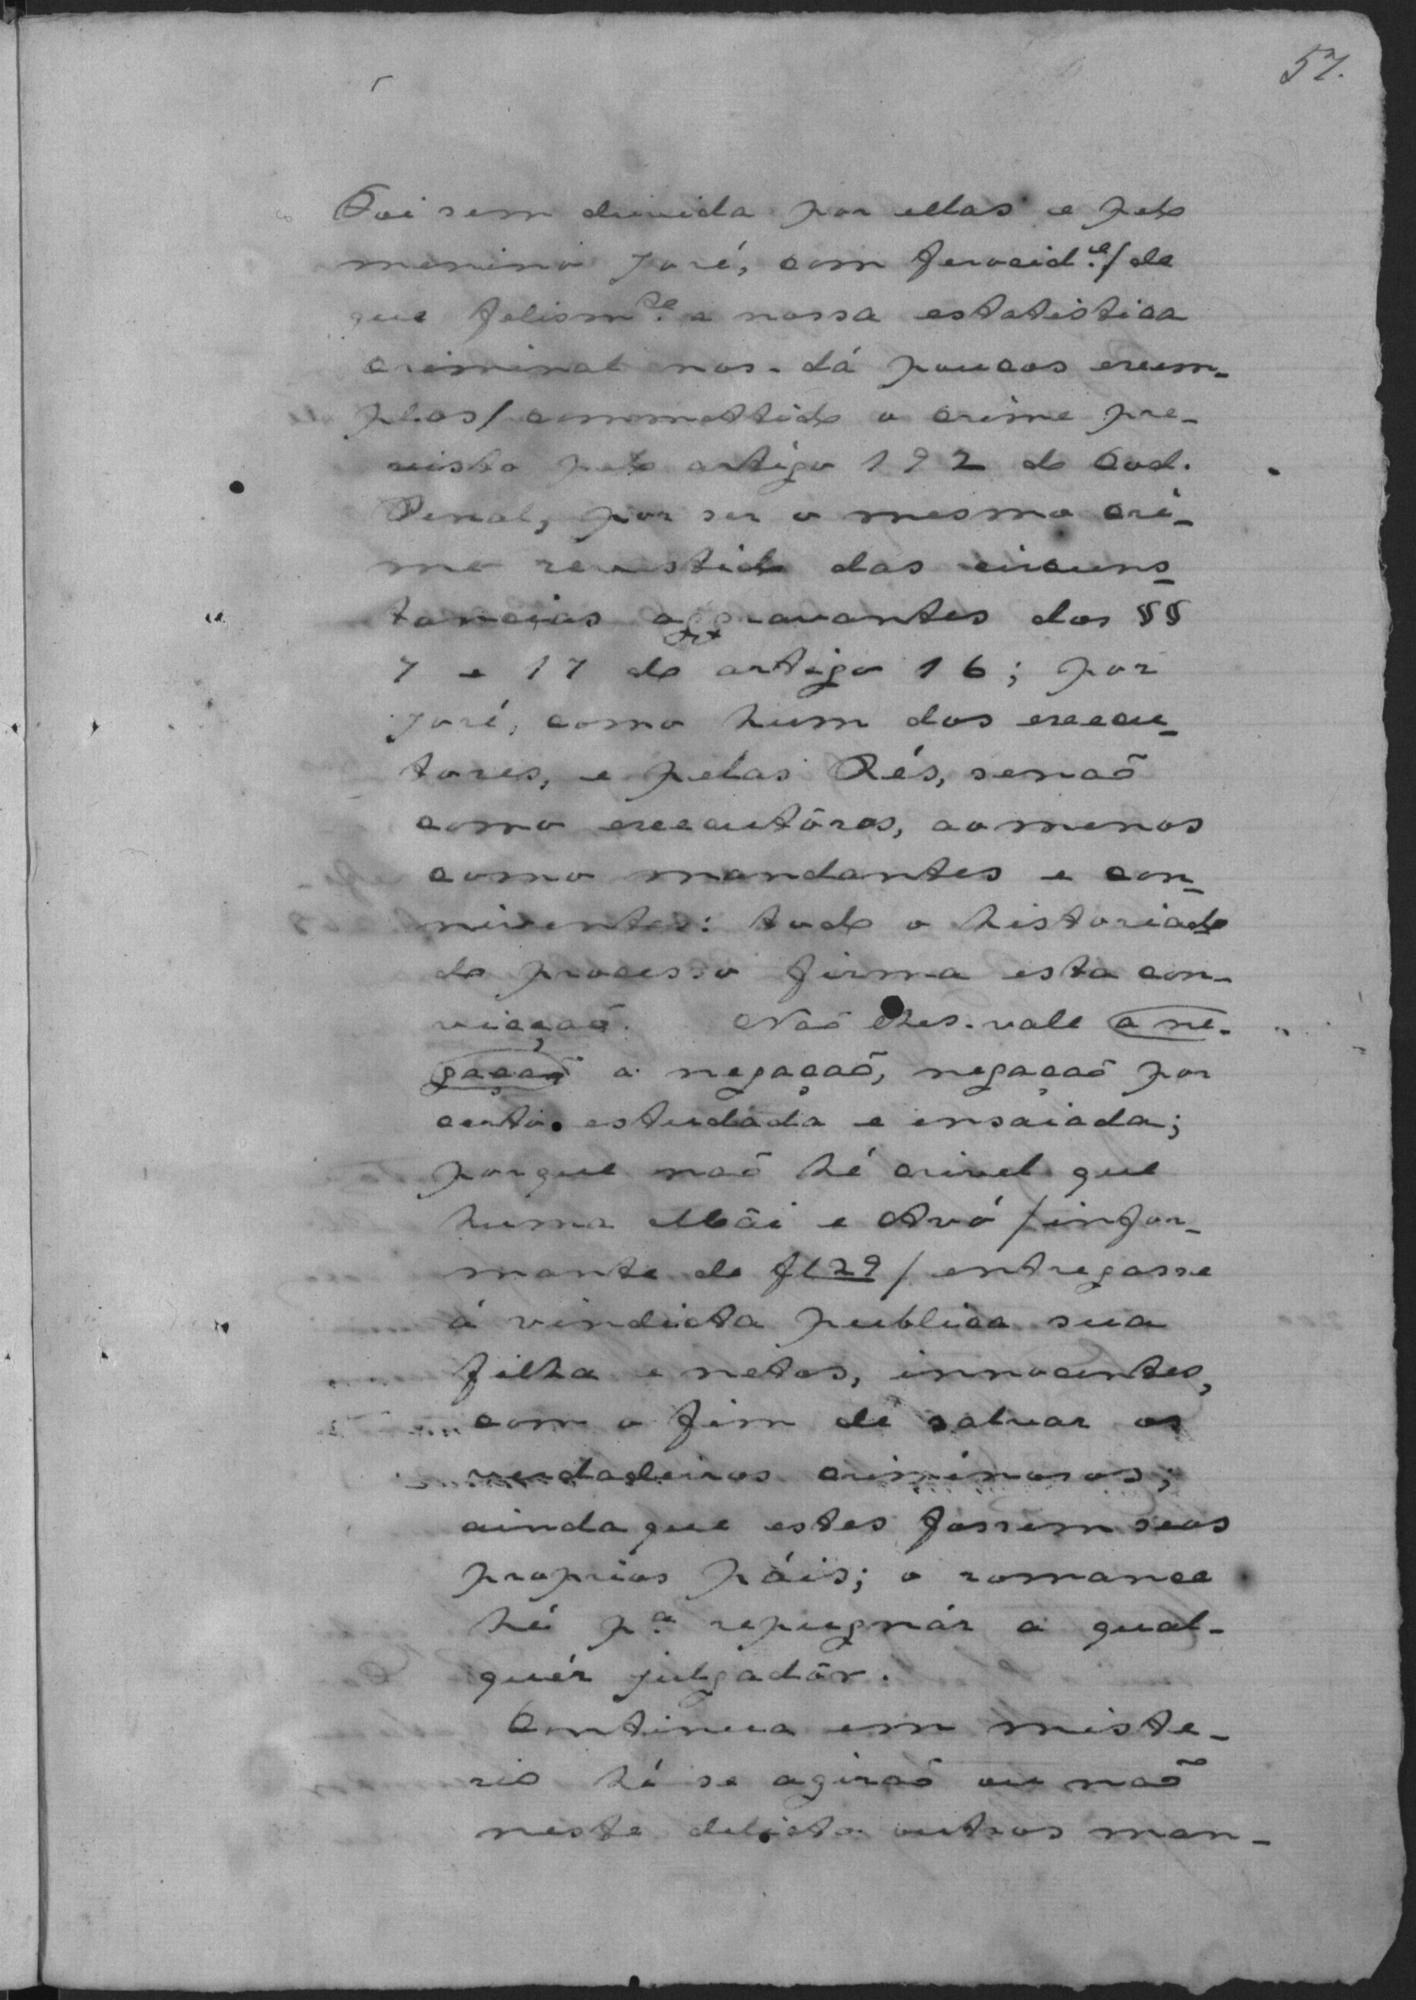 57.
Foi sem duvida por ellas e pelo
menino José, com ferocid.e / de
que felism.te a nossa estatistica
criminal nos-dá poucos exem-
plos / commettido o crime pre-
visto pelo artigo 192 do Cod.
Penal, por ser o mesmo cri-
me revestido das circuns-
tancias aggravantes dos §§
7 e 17 do artigo 16; por
José, como hum dos execu-
tores, e pelas Rés, senaõ
como executôras, ao menos
como mandantes e con-
niventes: todo o historiado
do processo firma esta con-
vicçaõ. Naõ lhes-vale a ne-
gaçaõ a negaçaõ, negaçaõ por
certo estudada e ensaiada;
porque naõ hé crivel que
huma Mãi e Avó / infor-
mante de fl 29 / entregasse
á vindicta publica sua
filha e netos, innocentes,
com o fim de salvar os
verdadeiros criminosos;
ainda que estes fossem seos
proprios páis; o romance
hé p.a repugnár a qual-
quér julgadôr.
Continua em miste-
rio hé se agiraõ ou naõ
neste delicto outros man-